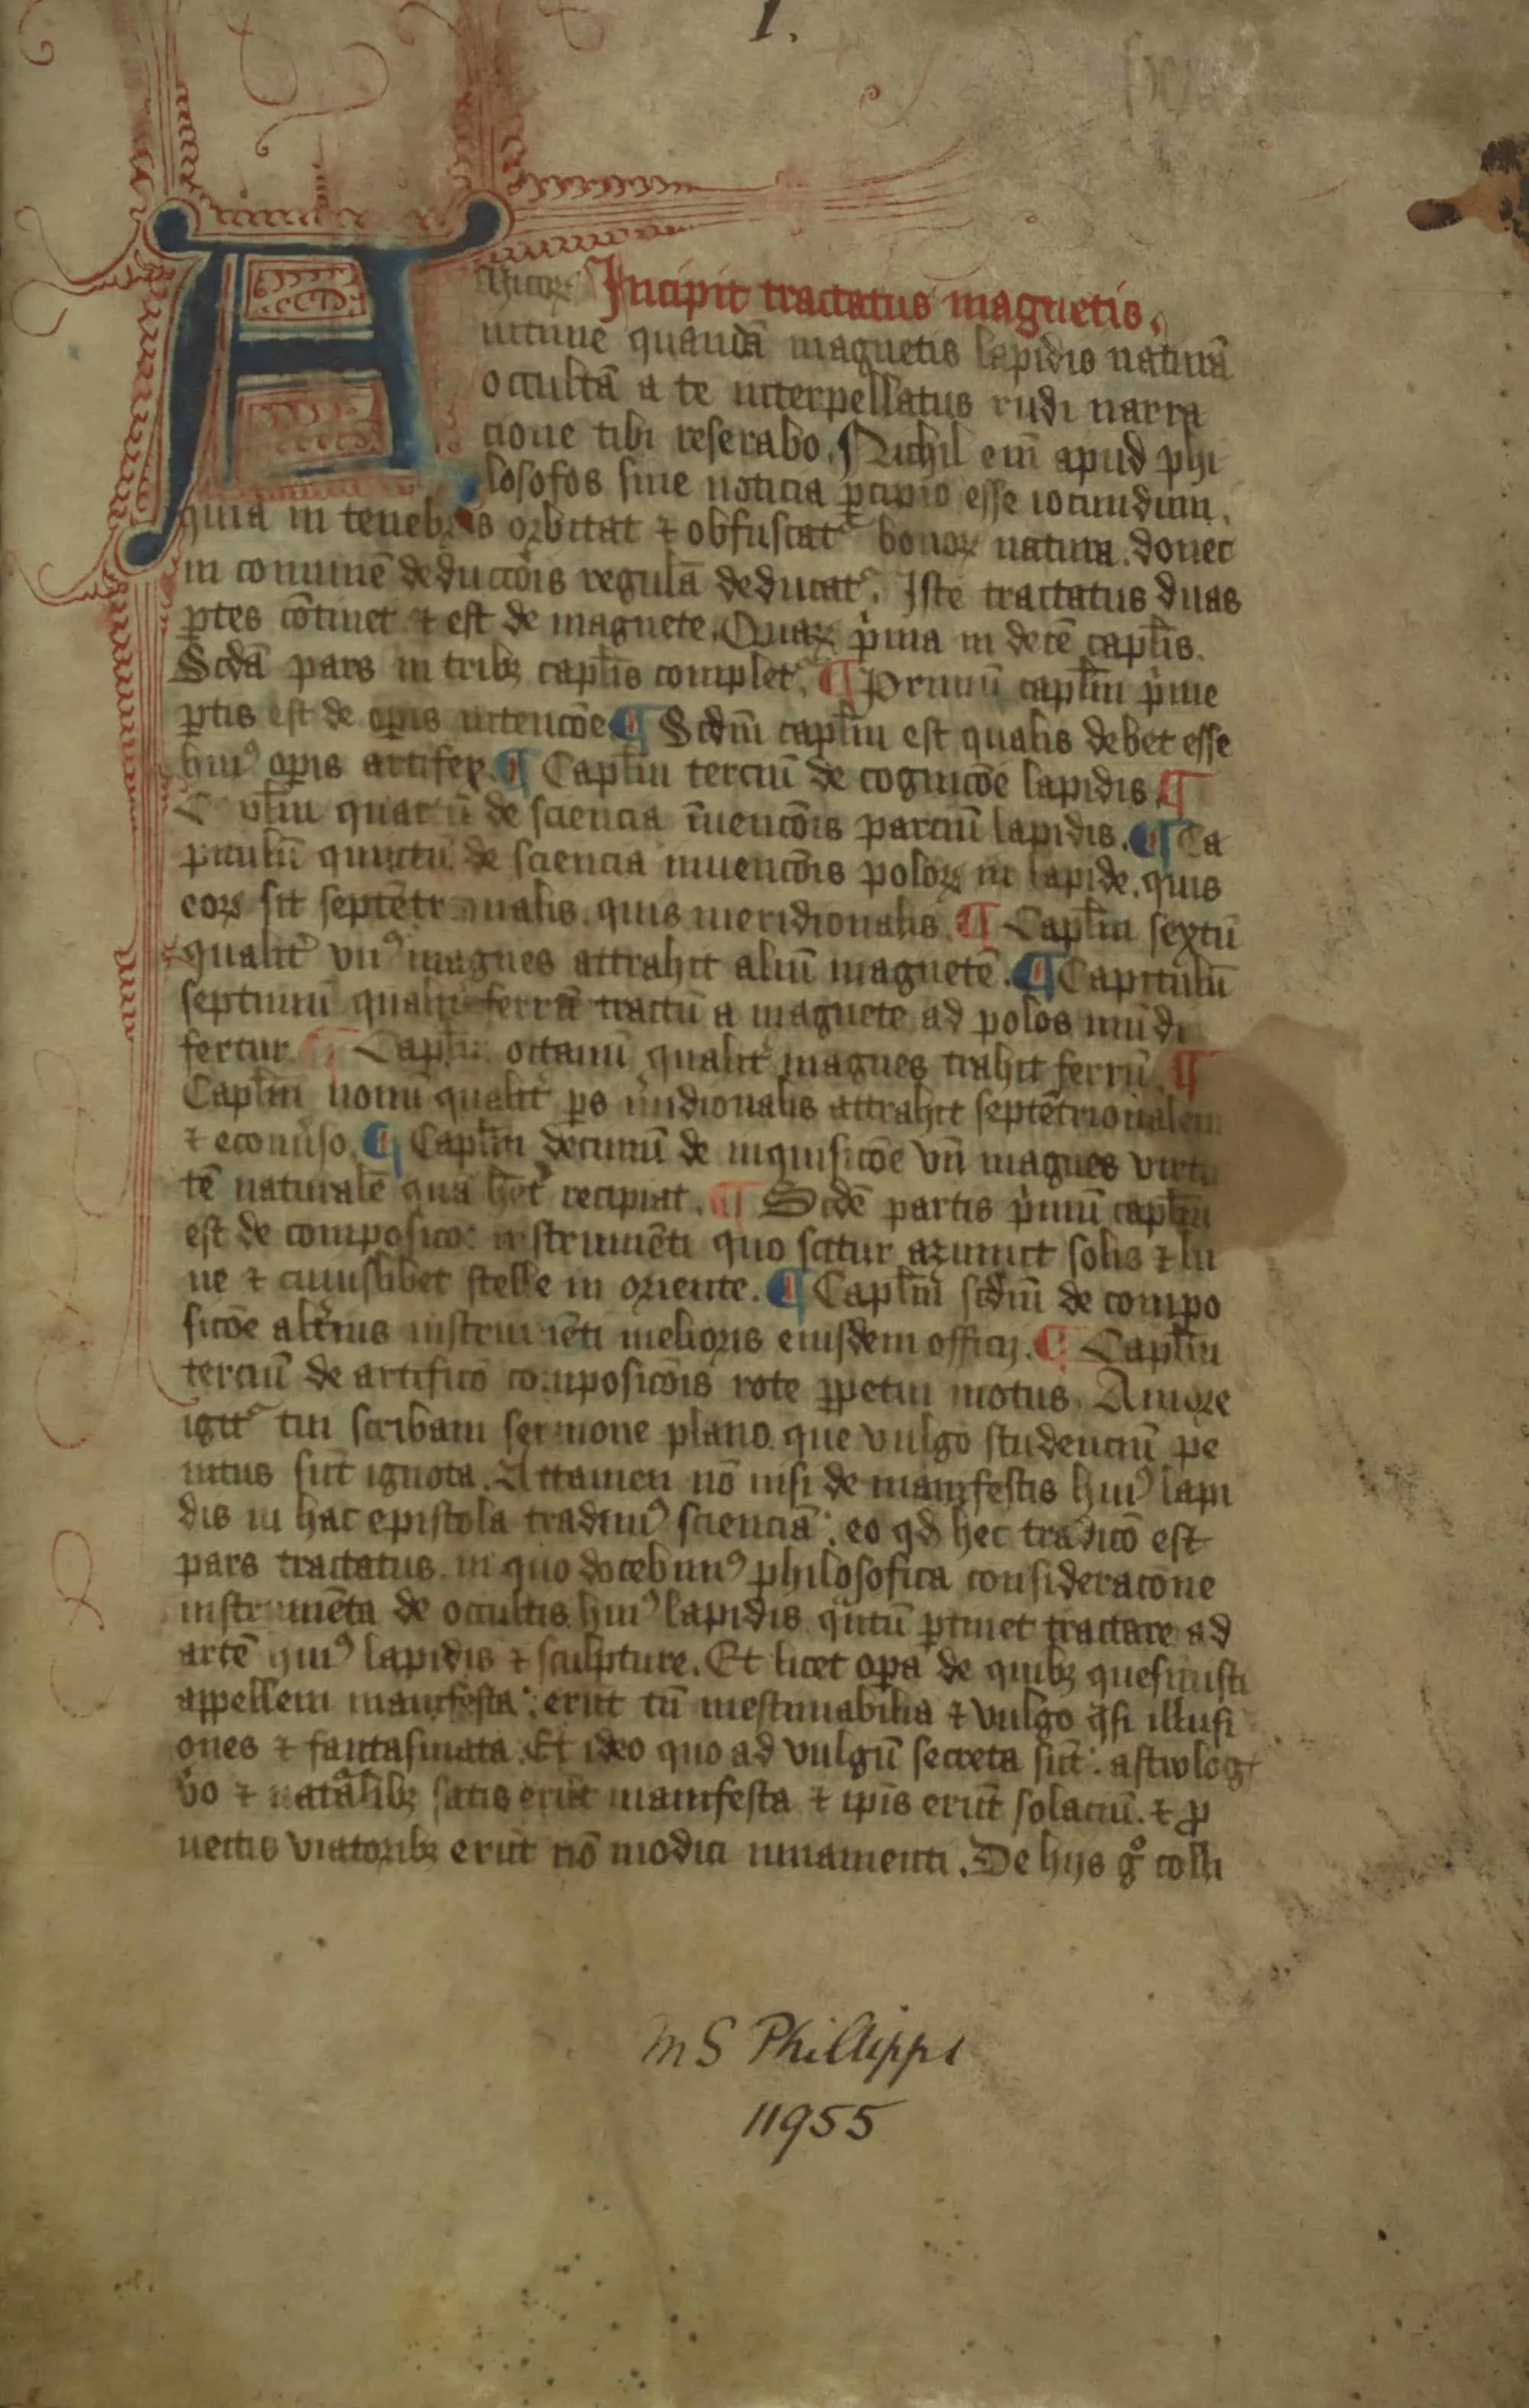 1.
Amicorū Incipit tractatus magnetis.
intime quandā magnetis lapidis naturā
occultā a te interpellatus rudi narra
cione tibi reserabo. Nichil em̄ apud phi
losofos sine noticia ꝑcipio esse iocundum.
quia in tenebris orbitat ⁊ obfuscat᷑ bonoꝝ natura. donec
in comunē deductōis regulā deducat᷑. Iste tractatus duas
ꝑtes cōtinet ⁊ est de magnete. Quaꝝ p̓ma in decē cap̄lis.
Scd̄a pars in tribꝫ cap̄lis complet᷑. ¶ Primū cap̄lm p̓me
ꝑtis est de oꝑis intencōe ¶ Scdm̄ cap̄lm est qualis debet esse
huiꝰ oꝑis artifex. ¶ Cap̄lm terciū de cognicōe lapidis ¶
Cap̄lm quartū de sciencia īuencōis parciū lapidis. ¶ Ca
pitulū quintū de sciencia inuencōis poloꝝ in lapide. quis
eoꝝ sit septētrionalis. quis meridionalis. ¶ Cap̄lm sextū
qualit̓ vnꝰ magnes attrahit aliū magnetē. ¶ Capitulū
septimū qualit̓ ferrū tractū a magnete ad polos mūdi
fertur. ¶ Cap̄lm octauū qualit̓ magnes trahit ferrū. ¶
Cap̄lm nonū qualit̓ ꝑs m̓idionalis attrahit septētrionalem
⁊ econuerso. ¶ Cap̄lm decimū de inquisicōe vn̄ magnes virtu
tē naturalē quā hēt recipiat. ¶ Scd̄e partis p̓mū cap̄lm
est de composico: instrumēti quo scitur azimut solis ⁊ lu
ne ⁊ cuiuslibet stelle in oriente. ¶ Cap̄lm scdm̄ de compo
sicōe alt̓ius instrumēti melioris eiusdem officij. ¶ Cap̄lm
terciū de artificō composicōis rote ꝑpetui motus. Amore
igit᷑ tui scribam sermone plano que vulgo studenciū pe
nitus sūt ignota. Attamen nō nisi de manifestis huiꝰ lapi
dis in hac epistola tradimꝰ scienciā: eo qd̓ hec tradicō est
pars tractatus. in quo docebimꝰ philosofica consideracōne
instrumēta de occultis huiꝰ lapidis q̓ntū ꝑtinet tractare ad
artē huiꝰ lapidis ⁊ sculpture. Et licet oꝑa de quibꝫ quesiuisti
appellem manifesta: erūt tn̄ inestimabilia ⁊ vulgo q̓si illusi
ones ⁊ fantasmata. Et ideo quo ad vulgū secreta sūt: astrolog
v̓o ⁊ nat᷑alibꝫ satis erūt manifesta ⁊ ip̄is erūt solaciū. ⁊ ꝓ
uectis viatoribꝫ erūt nō modici iuuamenti. De hijs gͦ colli
MS Phillipps
11955